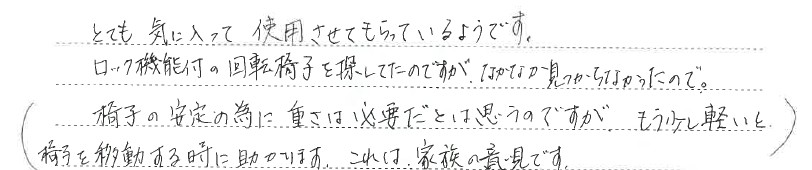 とても 気に入って 使用させてもらっているようです。
ロック機能付の回転椅子を探してたのですが、なかなか見つからなかったので。
(椅子の安定の為に重さは必要だとは思うのですが、もう少し軽いと
椅子を移動する時に助かります。これは、家族の意見です。)